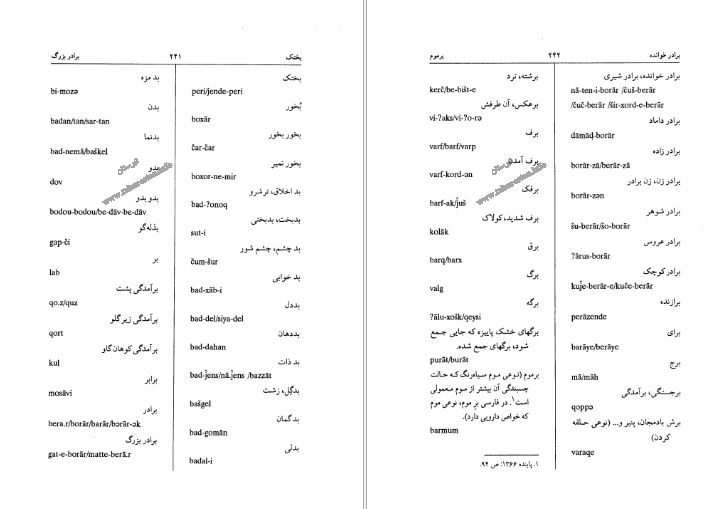 بختک ۲۴۱ برادر بزرگ
بختک
peri/jende-peri
بُخور
boxār
بخور بخور
čar-čar
بخور نمیر
boxor-ne-mir
بد اخلاق، ترشرو
bad-?onoq
بدبخت، بدبختی
sut-i
بد چشم، چشم شور
čum-šur
بد خوابی
bad-xāb-i
بددل
bad-del/siya-del
بددهان
bad-dahan
بد ذات
bad-ǰens/nā.ǰens /bazzāt
بدگِل، زشت
bašgel
بد گمان
bad-gomān
بدلی
badal-i
بد مزه
bi-mozə
بدن
badan/tan/sar-tan
بدنما
bad-nemā/baškel
بدو
dov
بدو بدو
bodou-bodou/be-dāv-be-dāv
بذله‌گو
gap-či
بر
lab
برآمدگی پشت
qo.z/quz
برآمدگی زیر گلو
qort
برآمدگی کوهان گاو
kul
برابر
mosāvi
برادر
bera.r/borār/barār/bərār-ək
برادر بزرگ
gat-e-borār/matte-berā.r
برادر خوانده ۲۴۲ برموم
برادر خوانده، برادر شیری
nā-ten-i-borār /čuš-berār
/čuč-berār /šir-xord-e-berār
برادر داماد
dāmād-borār
برادر زاده
borār-zā/berār-zā
برادر زن، زن برادر
borār-zən
برادر شوهر
šu-berār/šo-borār
برادر عروس
?ārus-borār
برادر کوچک
kuǰe-berār-e/kuče-berār
برازنده
perāzende
برای
barāye/berāye
برج
mā/māh
برجستگی، برآمدگی
qoppə
برش بادمجان، پنیر و... (نوعی حلقه
کردن)
varaqe
برشته، ترد
kerč/be-bišt-e
برعکس، آن طرفش
vi-?aks/vi-?o-rə
برف
varf/barf/varp
برف آمدن
varf-kord-ən
برفک
barf-ak/ǰuš
برف شدید، کولاک
kolāk
برق
barq/barx
برگ
valg
برگه
?ālu-xošk/qeysi
برگهای خشک پاییزه که جایی جمع
شود، برگهای جمع شده.
purāt/burāt
برموم (نوعی موم سیاه‌رنگ که حالت
چسبندگی آن بیشتر از موم معمولی
است۱. در فارسی بر موم، نوعی موم
که خواص دارویی دارد).
barmum
۱. پاینده ۱۳۶۶: ص ۹۲.